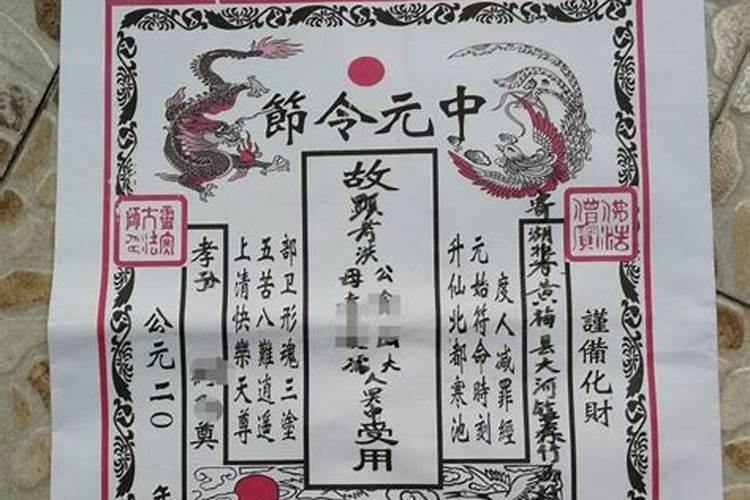 中元令節
佛法僧寶
謹備化財
寄湖北黄梅县大河镇
度人减罪經
元始符命時刻
升仙北都寒池
故
公大人
母孺
受用
部卫形魂三塗
五苦八難逍遥
上清快樂天尊
孝孙
奠
靈寶大法師印
公元二〇 年